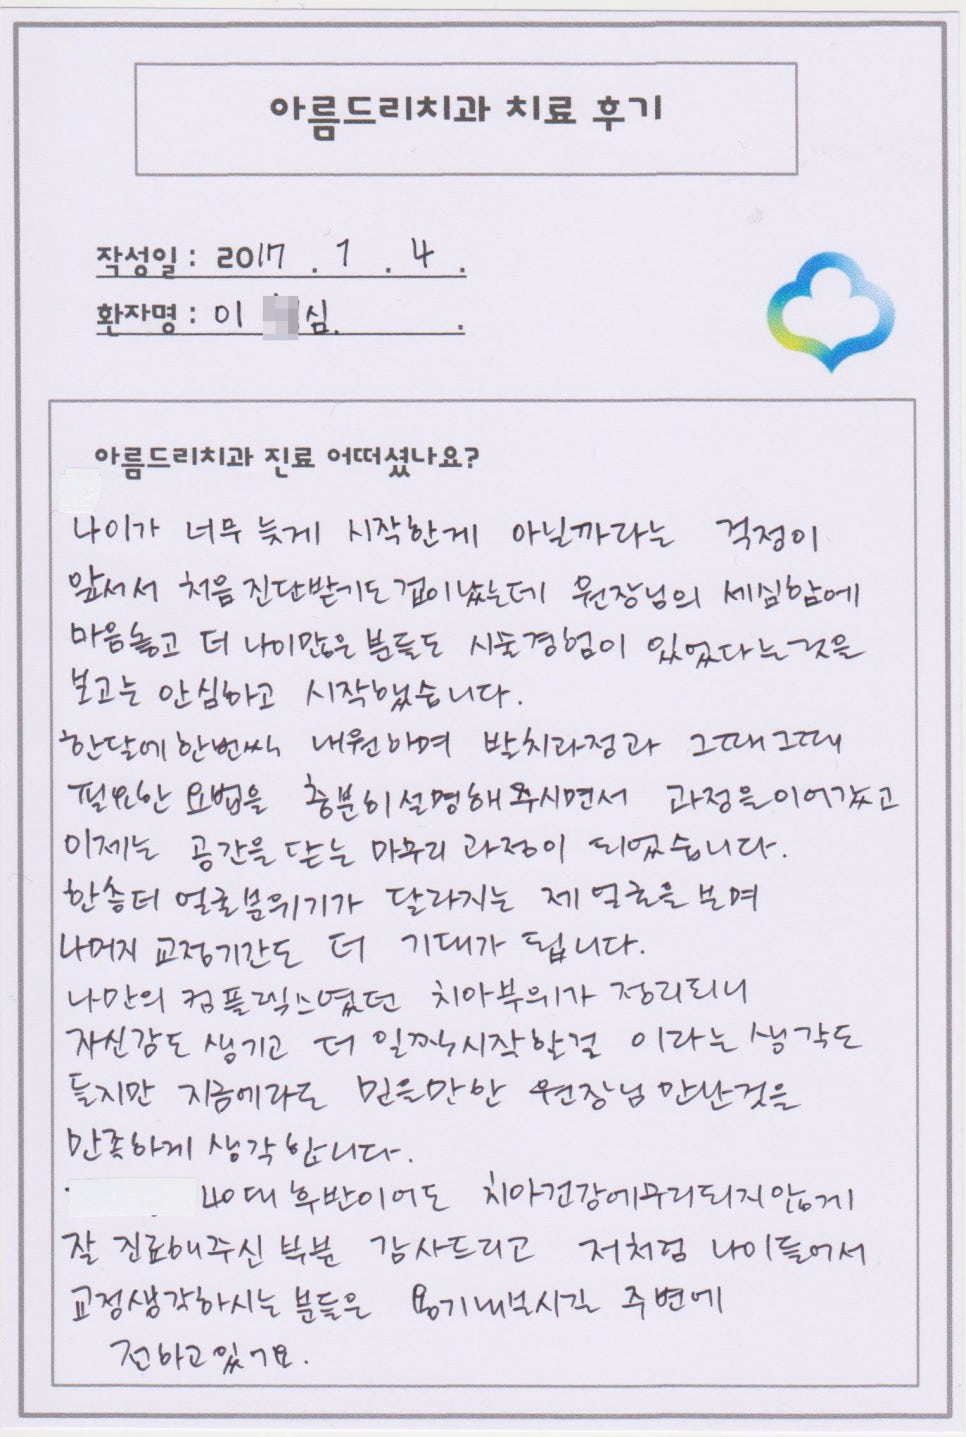 아름드리치과 치료 후기
작성일 : 2017 . 1 . 4 .
환자명 : 이 심. .
아름드리치과 진료 어떠셨나요?
나이가 너무 늦게 시작한게 아닐까라는 걱정이
앞서서 처음 진단받기도 겁이났는데 원장님의 세심함에
마음놓고 더 나이많은 분들도 시술경험이 있었다는것을
보고는 안심하고 시작했습니다.
한달에 한번씩 내원하며 발치과정과 그때그때
필요한 요법을 충분히 설명해 주시면서 과정을이어갔고
이제는 공간을 닫는 마무리 과정이 되었습니다.
한층더 얼굴분위기가 달라지는 제 얼굴을 보며
나머지 교정기간도 더 기대가 됩니다.
나만의 컴플렉스였던 치아부위가 정리되니
자신감도 생기고 더 일찍시작할걸 이라는 생각도
들지만 지금에라도 믿을만한 원장님 만난것을
만족하게 생각합니다.
40대 후반이어도 치아건강에무리되지않게
잘 진료해주신 부분 감사드리고 저처럼 나이들어서
교정생각하시는 분들은 용기내보시길 주변에
전하고있기요.